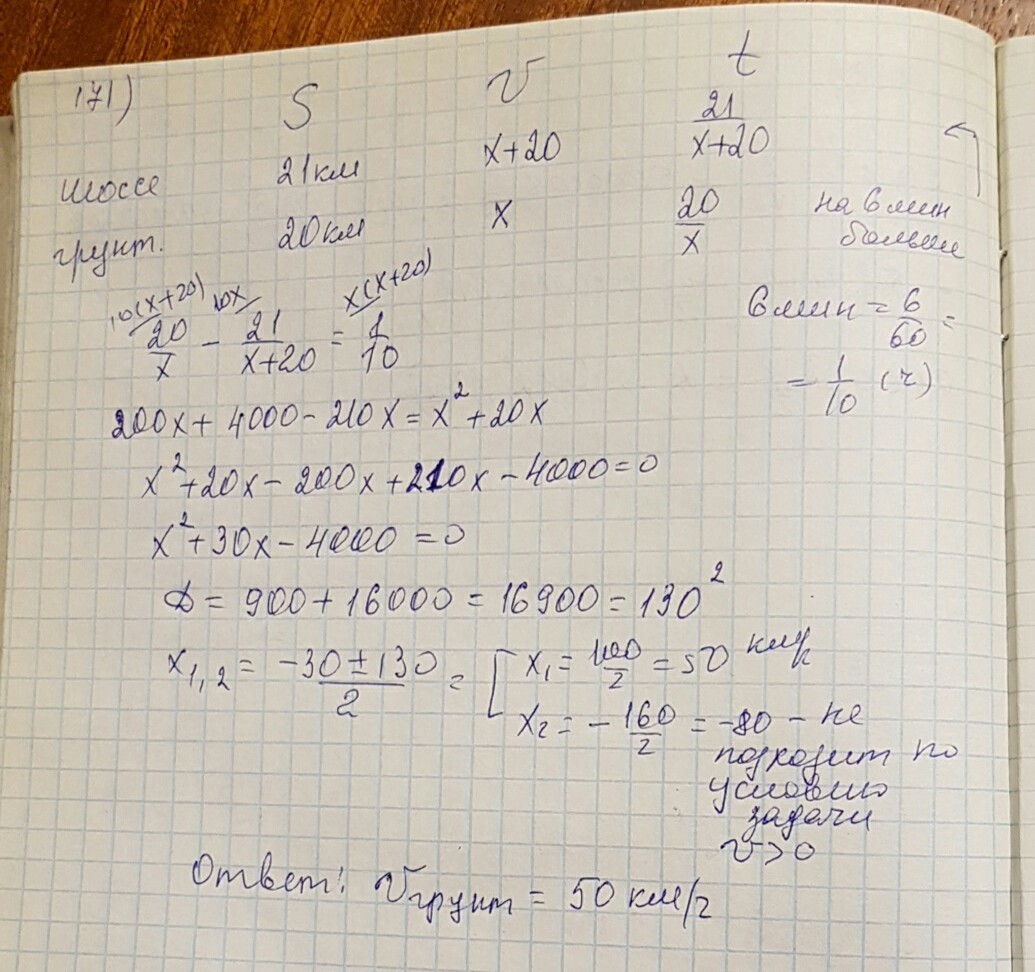 171)
S v t
шоссе 21км x+20 21/(x+20)
грунт. 20км x 20/x на 6 мин больше
10(x+20) 10x x(x+20)
20/x - 21/(x+20) = 1/10
6 мин = 6/60 =
= 1/10 (ч)
200x + 4000 - 210x = x² + 20x
x² + 20x - 200x + 210x - 4000 = 0
x² + 30x - 4000 = 0
D = 900 + 16000 = 16900 = 130²
x1,2 = (-30 ± 130)/2 = [ x1 = 100/2 = 50 км/ч
x2 = -160/2 = -80 - не
подходит по
условию
задачи
v > 0
Ответ: vгрунт = 50 км/ч